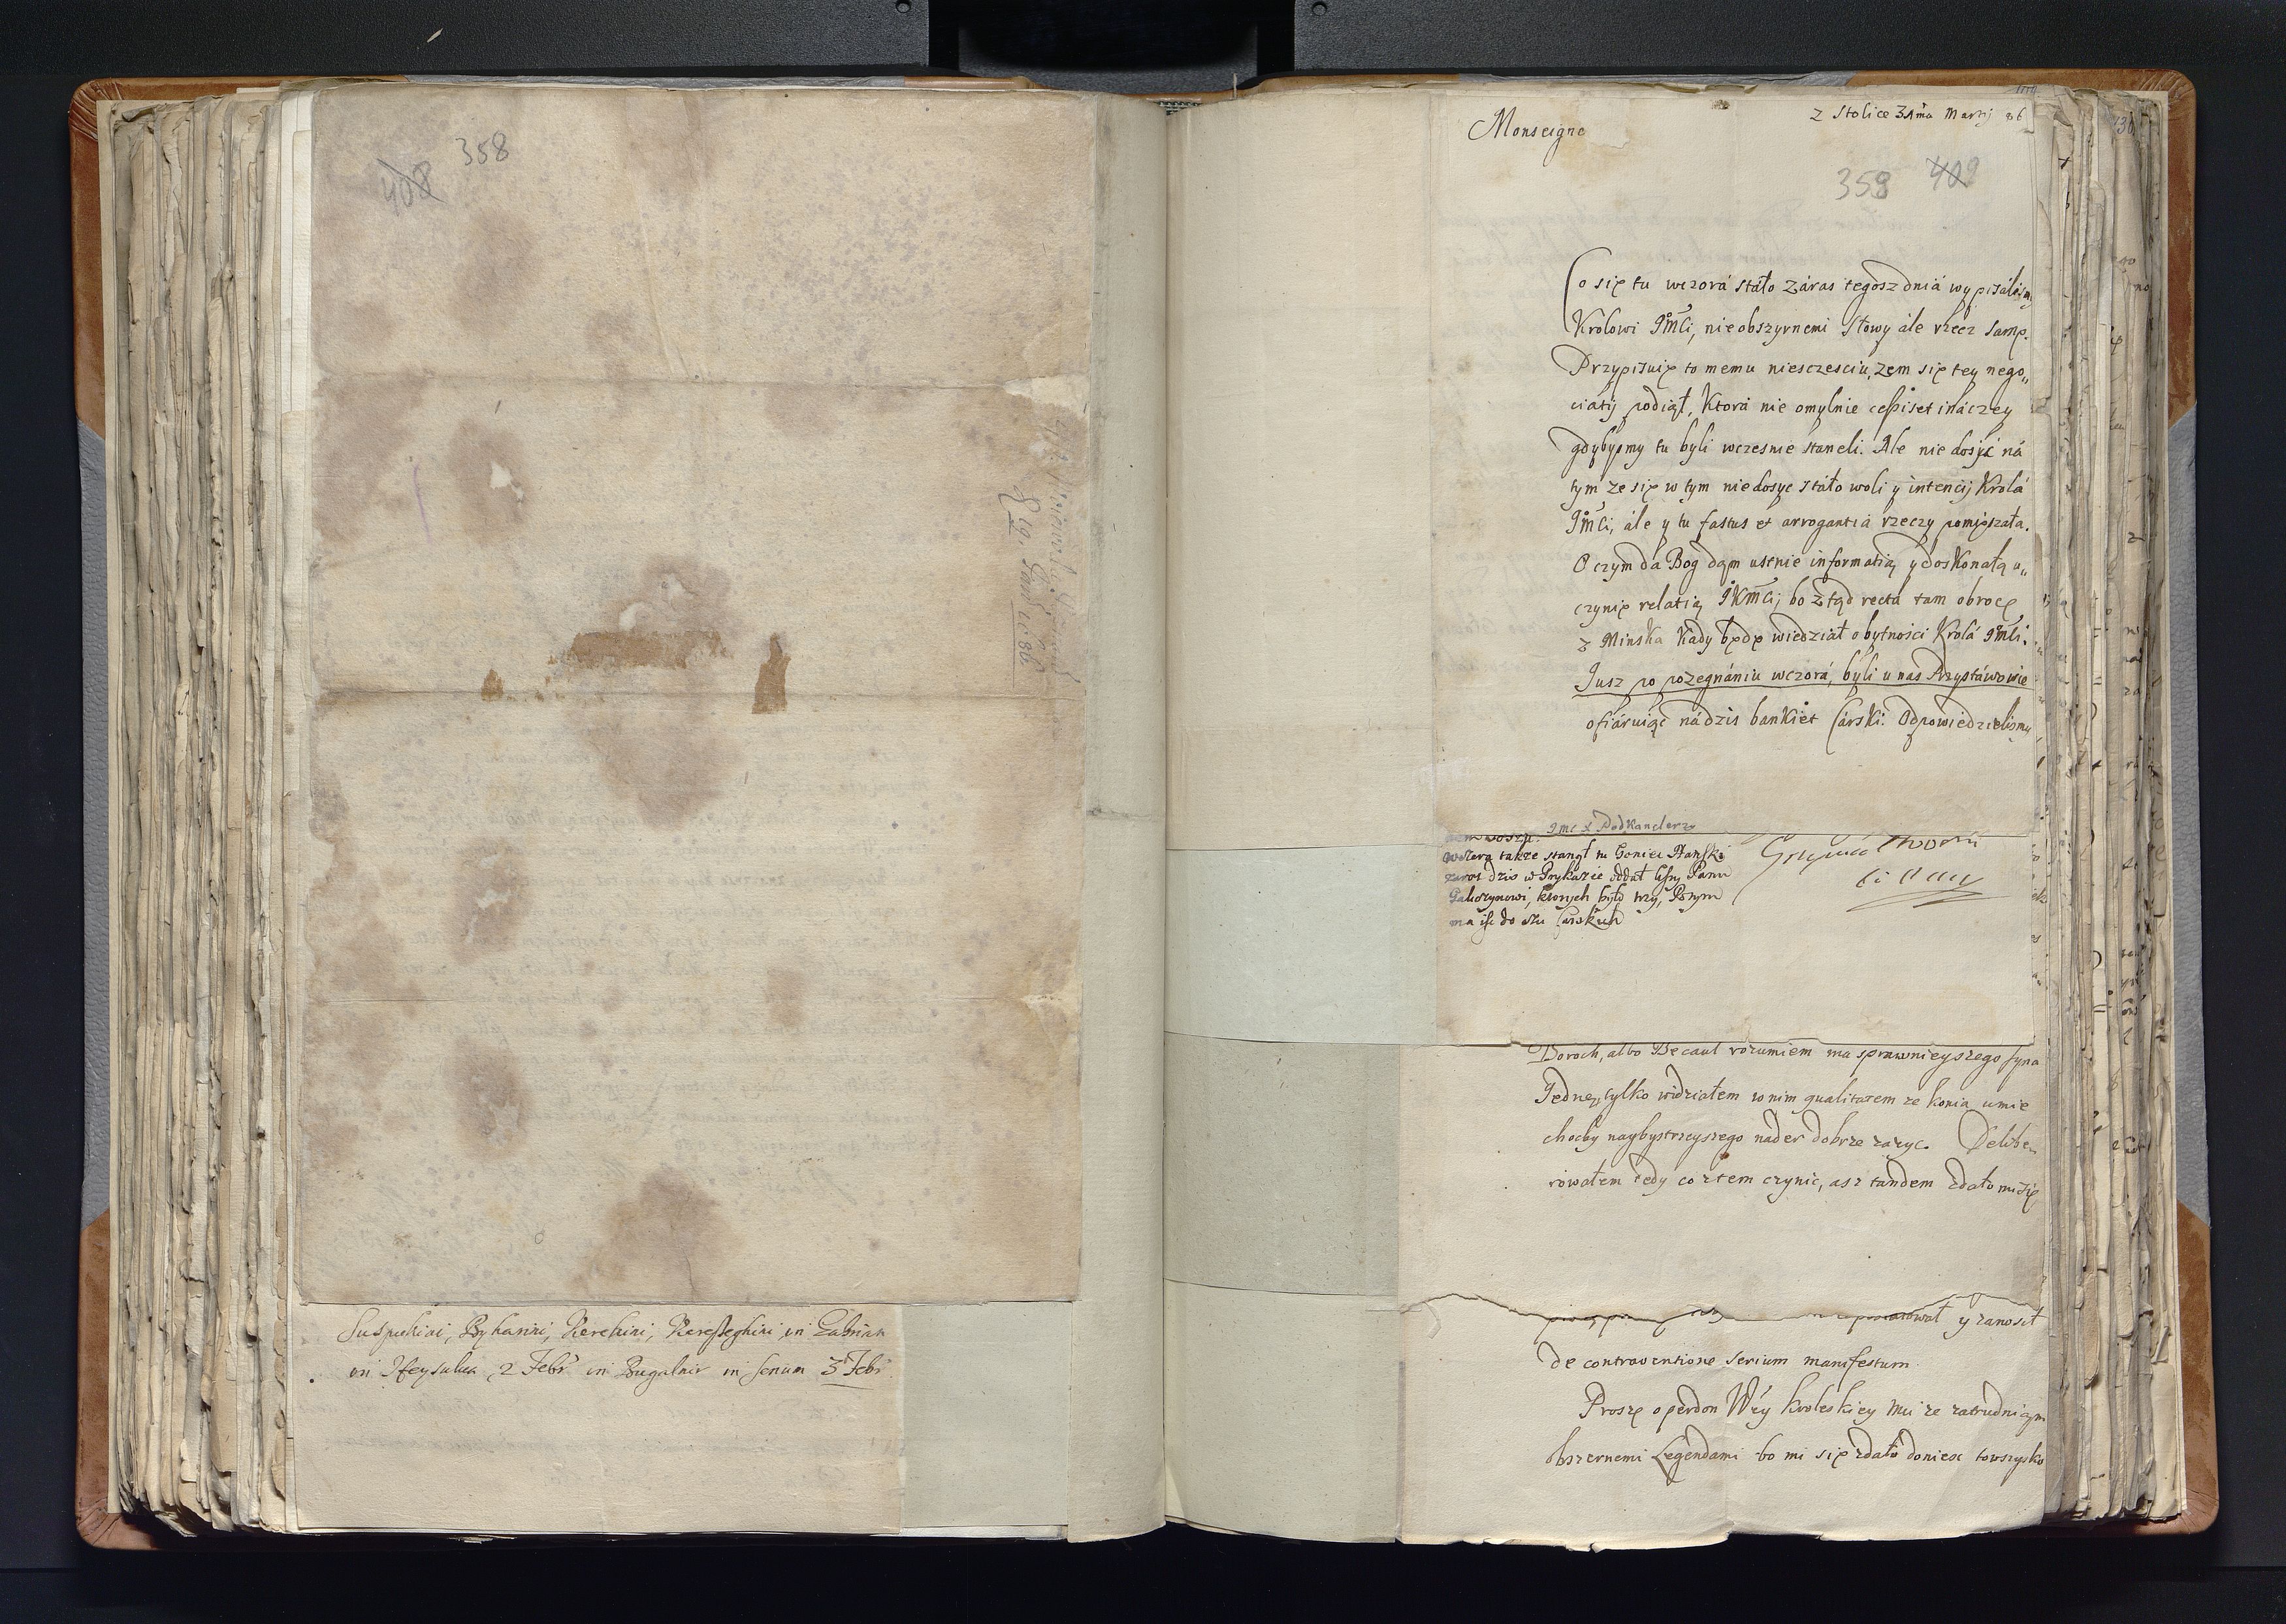 358
408
19. 1686.
Suspichini, Byharini, Kerekini, Keresteghini, in
in Heysulux, 2 Febr in Bugalnir in senum 3 Febr
Monseigne
z Stolice 31ma Martij 86
359 409
Co się tu wczorá stáło záras tegosz dniá wypisáliśmy
Krolowi JMci, nie obszyrnemi słowy ále rzecz samę.
Przypisuię to memu niesczesciu, zem się tey nego„
ciatij podiął, Ktorá nie omylnie cepiset ináczey
gdybysmy tu byli wczesnie staneli. Ale nie dosyć ná
tym ze się w tym nie dosyc stáło woli y intencij Krolá
JMci, ále y tu fastus et arrogantia rzeczy pomięszała.
O czym da Bog dąm ustnie informatią y doskonałą u„
czynię relatią JKMci, bo ztąd recta tam obrocę
z Minska Kady będę wiedział o bytności Krolá JMci.
Jusz po pozegnániu wczorá, byli u nas Przystáwowie
ofiáruiąc nádzis bankiet Cárski. Odpowiedzielismy
Jmc X Podkanclerz
wczera takze stanął tu Goniec Hanski
zaros dzis w Prykazie oddał listy Panu
Galiczynowi, ktorych było trzy, Potym
ma isc do Carskich
Doroch, albo Becaul rozumiem ma sprawnieyszego syna
Jednę tylko widziałem w nim qualitatem ze konia umie
chocby naybystrzeyszego nader dobrze zazyc. Delibe„
rowałem tedy co ztem czynic, asz tandem zdało mi się
y zanosił
de contraventione serium manifestum.
Proszę o perdon Wßy Kroleskiey Mci ze zatrudniąm
obszernemi Legendami bo mi się zdało doniesc towszysko